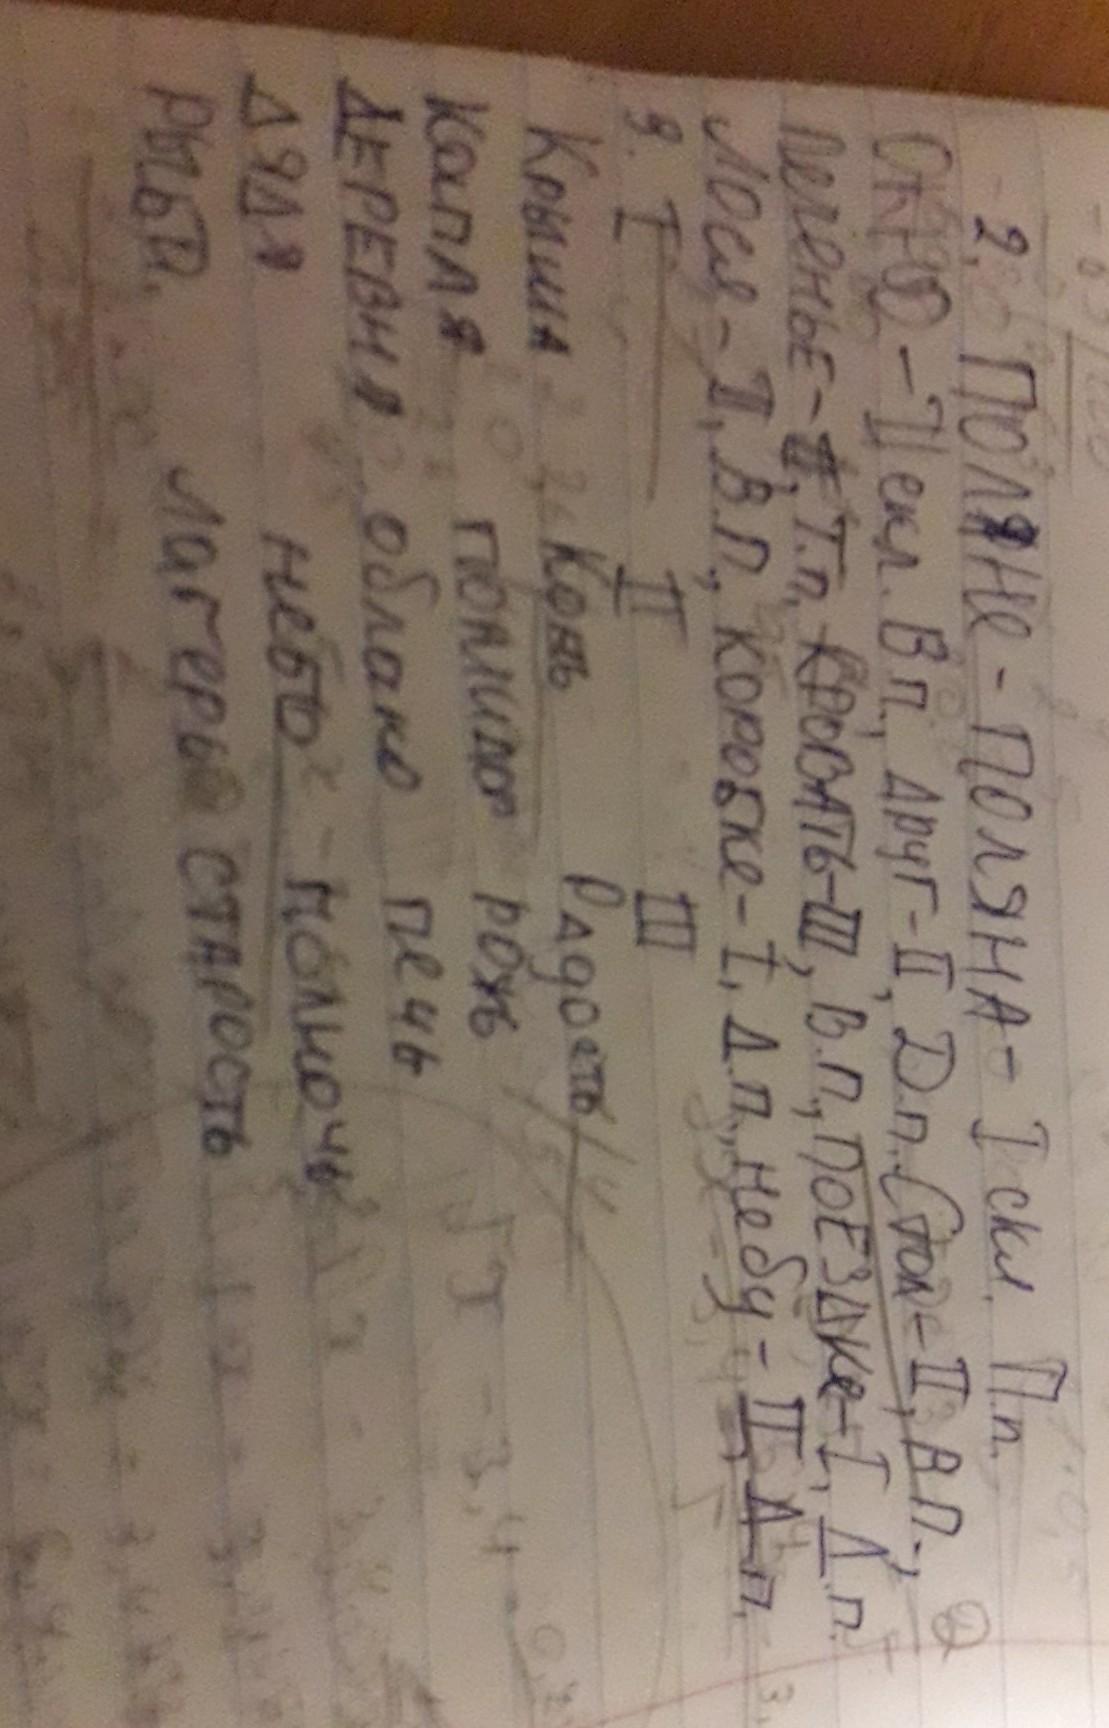 2. Поляне - поляна - I скл. П.п.
- II скл. Вп, друг - II, D.п. Стол - II, вп.,
Печенье - II, Т.п, кровать - III, В.п., поездке - I, Д.п.
Лося - II, В.п, коробке - I, Д.п., небу - II, Д.п.
3. I II III
Крыша Конь Радость
Капля помидор рожь
Деревня облако печь
Дядя небо полночь
Лагерь старость